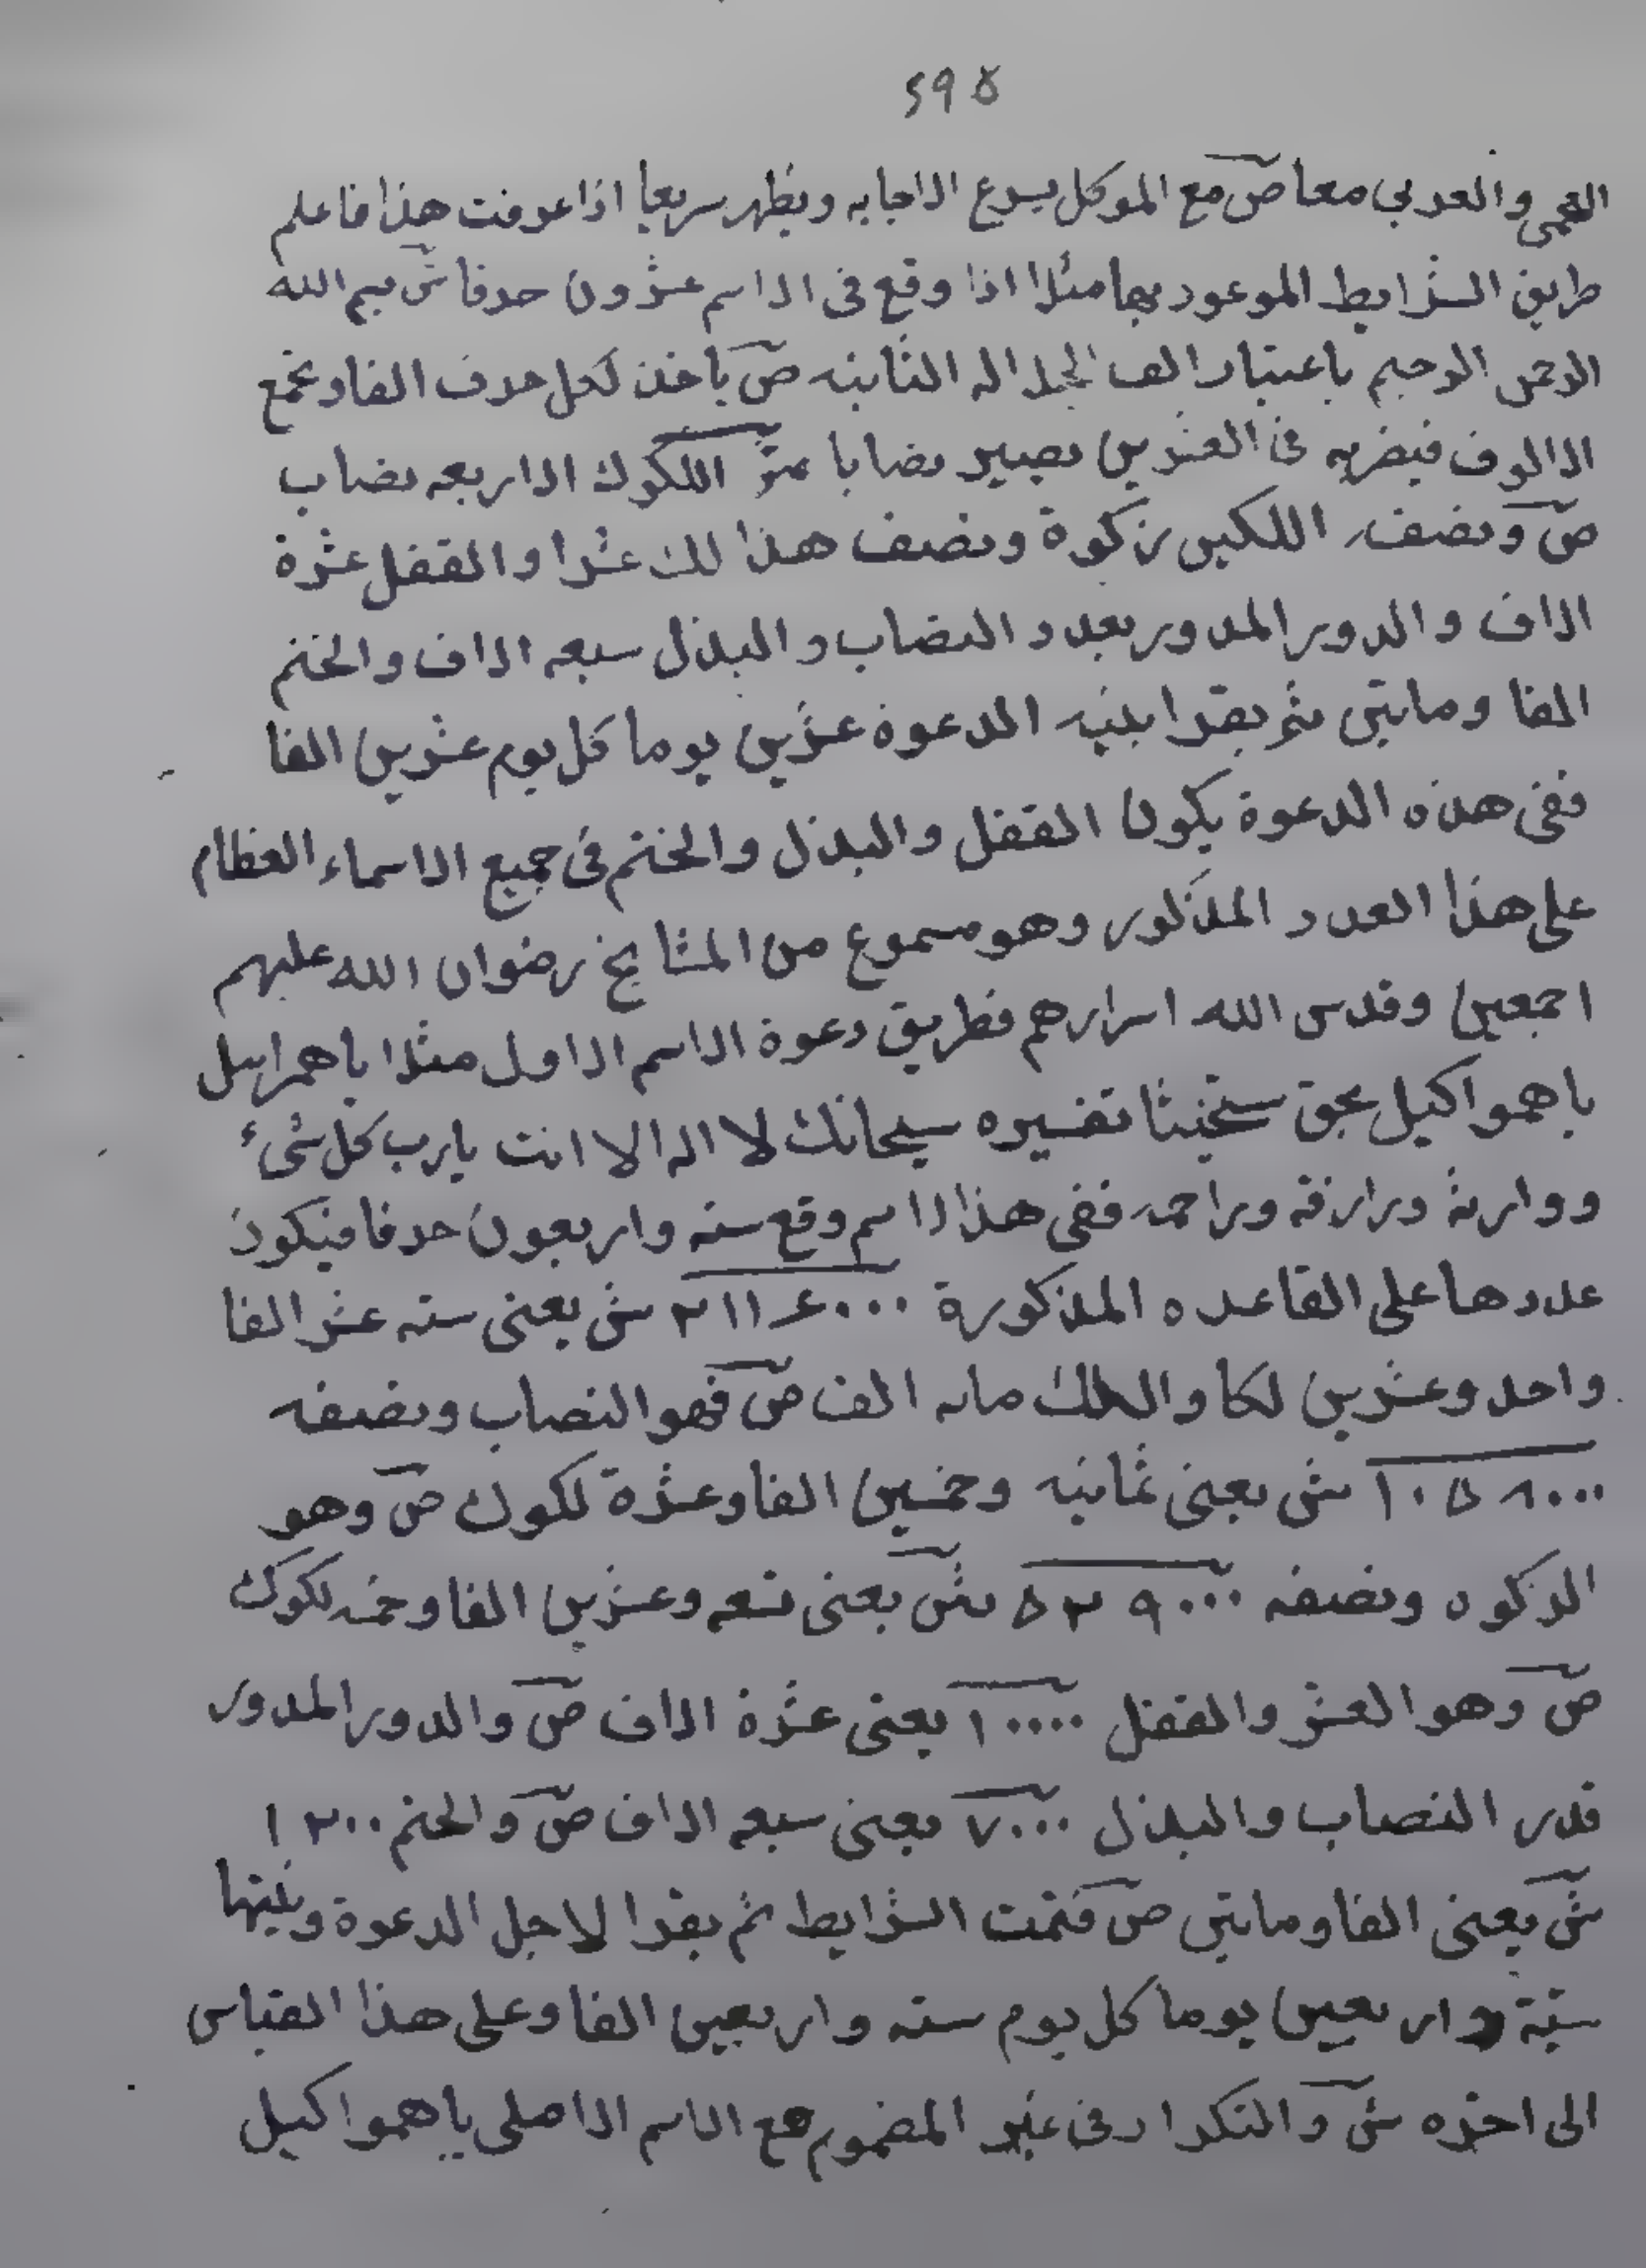 ٥٩٢
العجمى والعربي معا ص مع الموكل يسرع الاجابه ويظهر سريعا اذا عرفت هذا فاعلم
طريق الشرايط الموعود بها مثلا اذا وقع فى الاسم عشرون حرفا ش بسم الله
الرحمن الرحيم باعتبار الف الجلاله الثانيه ص ياخذ لكل حرف الفا ويجمع
الالوف فيضربه فى العشرين يصير نصابا ش اللكوك الاربعه نصاب
ص ونصفه اللكين زكوة ونصف هذا لك عشرا والقفل عشرة
الاف والدور المدور بعدد النصاب والبذل سبعه الاف والختم
الفا وماتين ثم يقرا بنيه الدعوة عشرين يوما كل يوم عشرين الفا
ففى هذه الدعوة يكون القفل والبذل والختم فى جميع الاسماء العظام
على هذا العدد المذكور وهو مسموع من المشايخ رضوان الله عليهم
اجمعين وقدس الله اسرارهم فطريق دعوة الاسم الاول مثلا ياهمراييل
ياهمواكيل بحق سختيثا تفسيره سبحانك لا اله الا انت يارب كل شىء
ووارثه ورازقه وراحمه ففى هذا الاسم وقع سته واربعون حرفا فيكون
عددها على القاعده المذكورة ٢١١٦٠٠٠ ش يعنى سته عشر الفا
واحد وعشرين لكا واللك مايه الف ص فهو النصاب ونصفه
١٠٥٨٠٠٠ ش يعنى ثمانيه وخمسين الفا وعشرة لكوك ص وهو
الزكوه ونصفه ٥٢٩٠٠٠ ش يعنى تسعه وعشرين الفا وخمسه لكوك
ص وهو العشر والقفل ١٠٠٠٠ يعنى عشرة الاف ص والدور المدور
قدر النصاب والبذل ٧٠٠٠ يعنى سبعه الاف ص والختم ١٢٠٠
ش يعنى الفا وماتين ص فتمت الشرايط ثم يقرا لاجل الدعوة ونيتها
ستة واربعين يوما كل يوم سته واربعين الفا وعلى هذا القياس
الى اخره ش والتكرار فى غير المضموم مع الاسم الاصلى ياهمواكيل